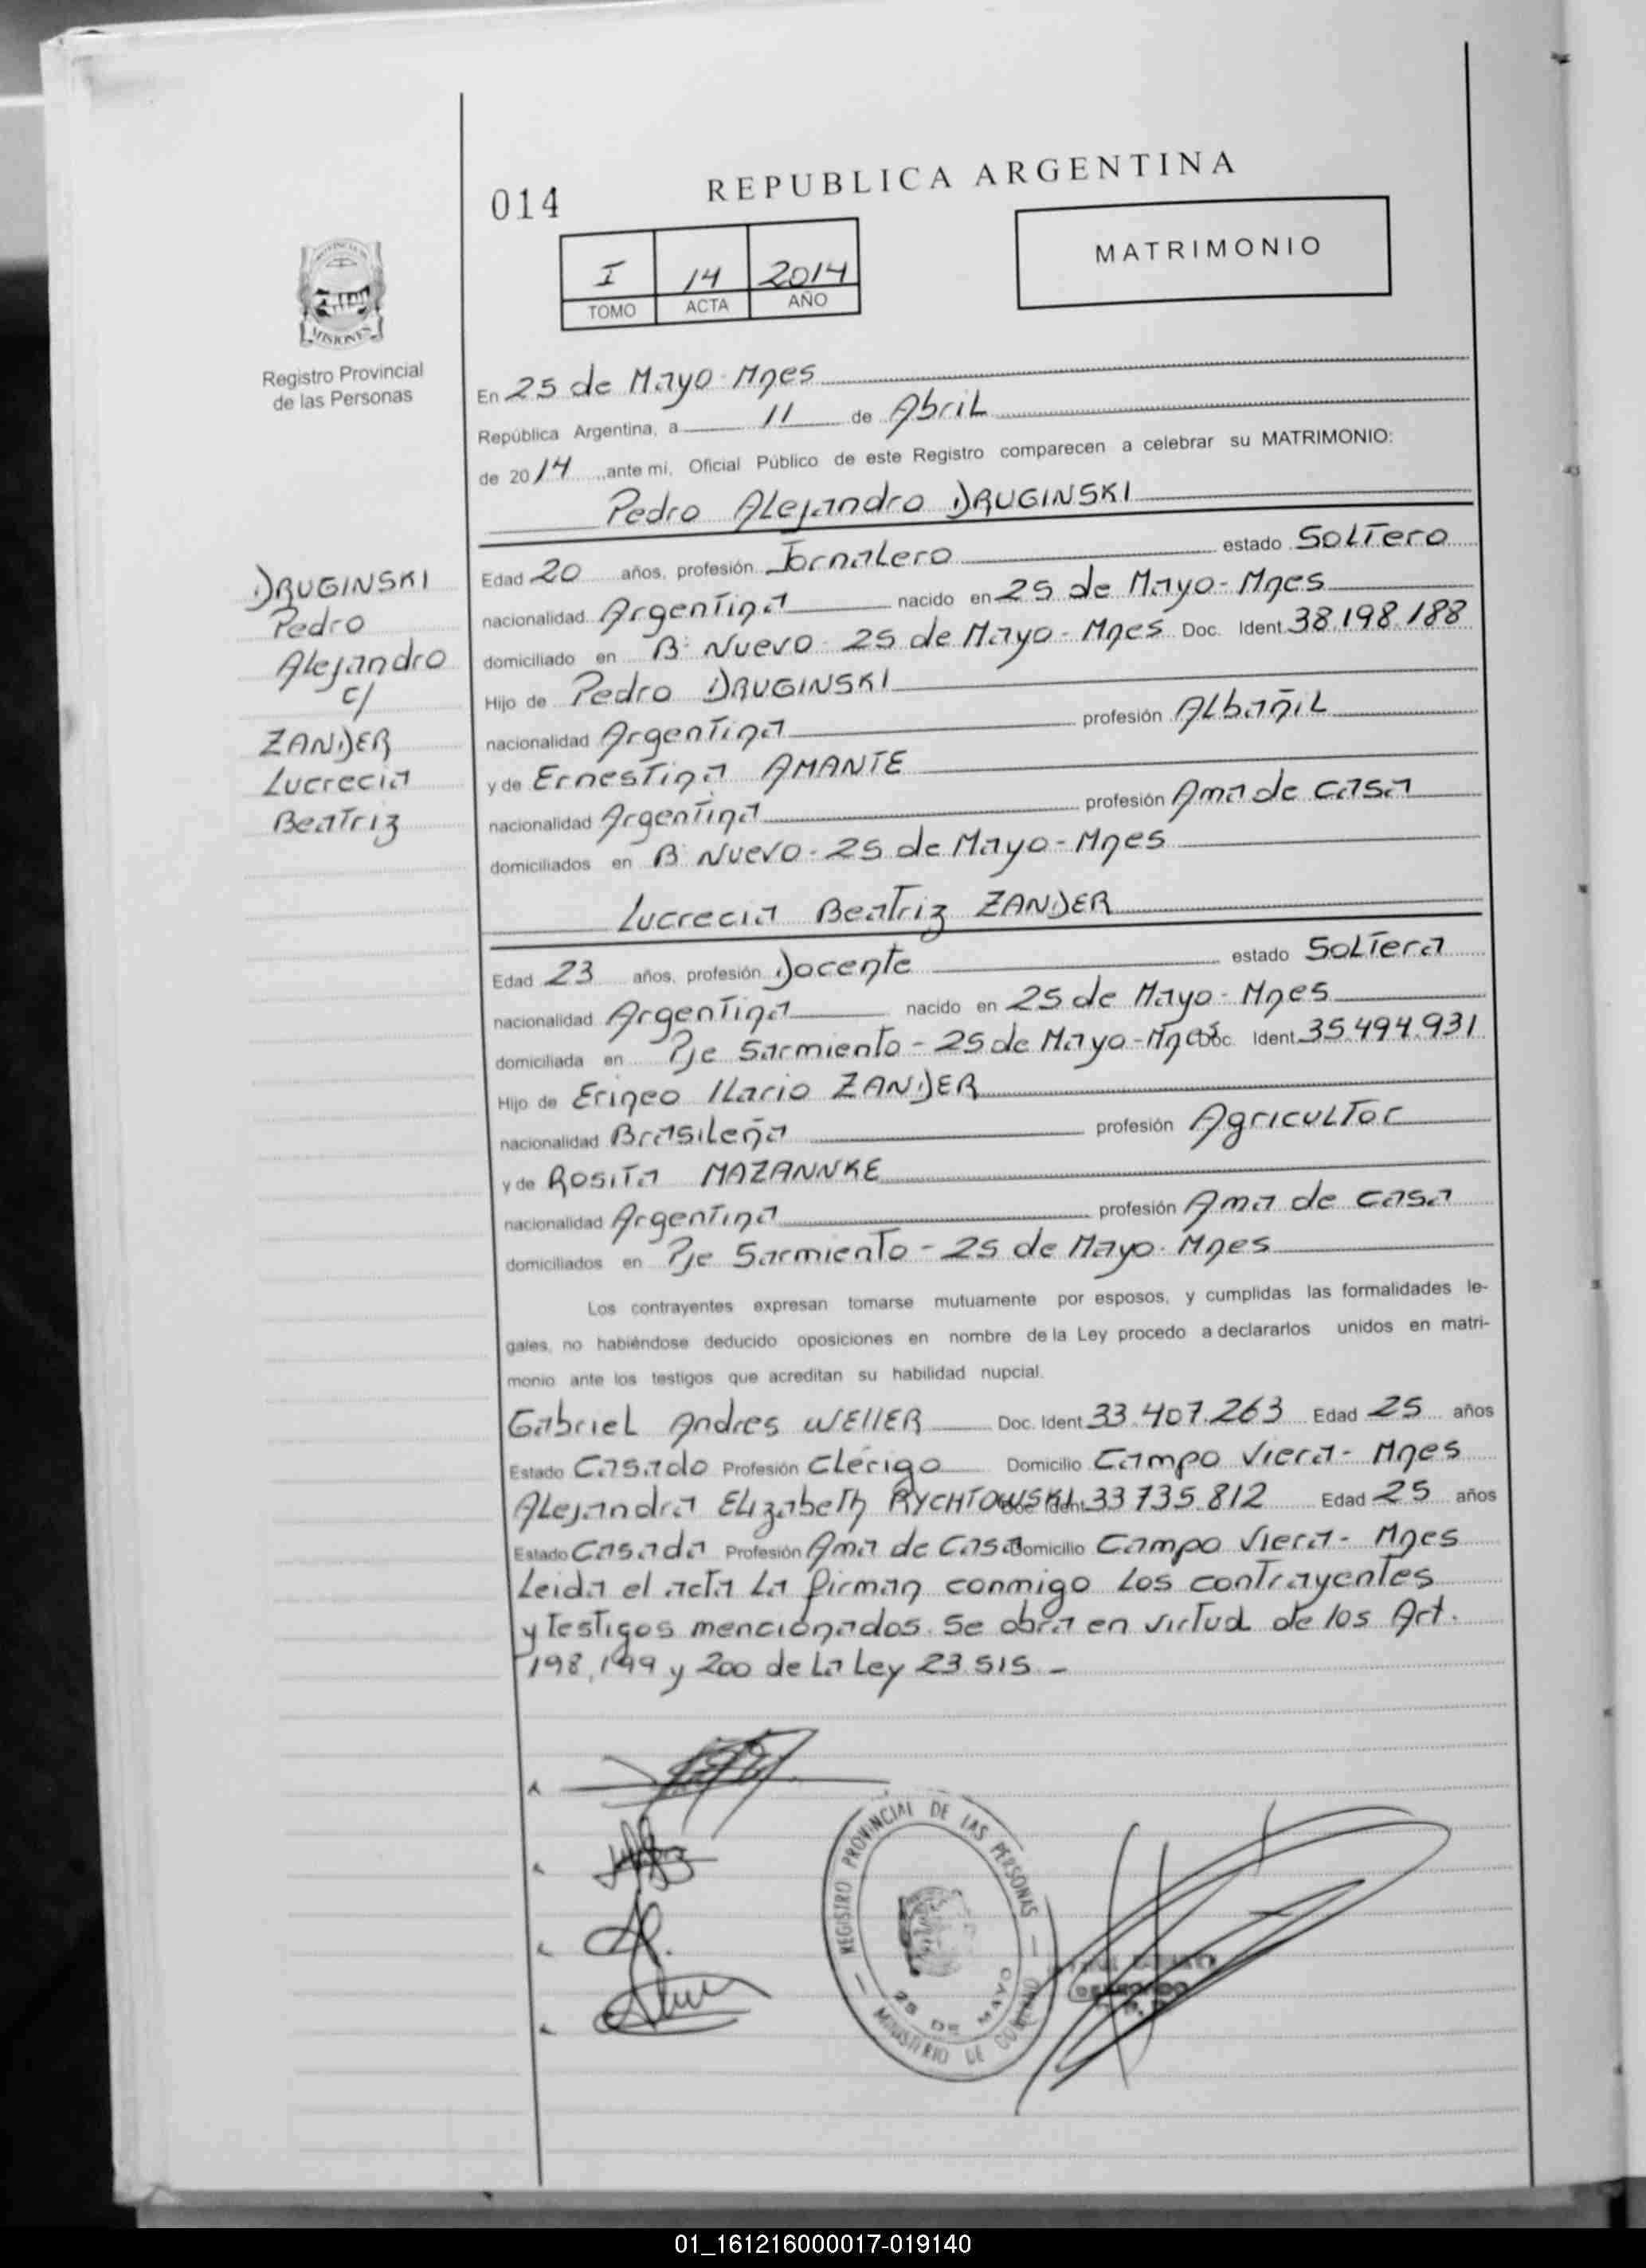 REPUBLICA ARGENTINA
014
MATRIMONIO
I 14 2014
TOMO ACTA AÑO
PROVINCIA DE
MISIONES
Registro Provincial
de las Personas
En 25 de Mayo - Mnes
República Argentina, a 11 de Abril
de 2014, ante mi, Oficial Público de este Registro comparecen a celebrar su MATRIMONIO:
Pedro Alejandro DRUGINSKI
Edad 20 años, profesión Jornalero estado Soltero
nacionalidad Argentina nacido en 25 de Mayo - Mnes
domiciliado en B: Nuevo - 25 de Mayo - Mnes Doc. Ident. 38.198.188
Hijo de Pedro DRUGINSKI
nacionalidad Argentina profesión Albañil
y de Ernestina AMANTE
nacionalidad Argentina profesión Ama de casa
domiciliados en B: Nuevo - 25 de Mayo - Mnes
DRUGINSKI
Pedro
Alejandro
c/
ZANDER
Lucrecia
Beatriz
Lucrecia Beatriz ZANDER
Edad 23 años, profesión Docente estado Soltera
nacionalidad Argentina nacido en 25 de Mayo - Mnes
domiciliada en Pje Sarmiento - 25 de Mayo - Mnes Doc. Ident. 35.494.931
Hijo de Erineo Ilario ZANDER
nacionalidad Brasileña profesión Agricultor
y de Rosita MAZANNKE
nacionalidad Argentina profesión Ama de casa
domiciliados en Pje Sarmiento - 25 de Mayo - Mnes
Los contrayentes expresan tomarse mutuamente por esposos, y cumplidas las formalidades le-
gales, no habiéndose deducido oposiciones en nombre de la Ley procedo a declararlos unidos en matri-
monio ante los testigos que acreditan su habilidad nupcial.
Gabriel Andres WEllER Doc. Ident. 33.407.263 Edad 25 años
Estado Casado Profesión Clérigo Domicilio Campo Viera - Mnes
Alejandra Elizabeth RYCHTOWSKI Doc. Ident. 33 735.812 Edad 25 años
Estado Casada Profesión Ama de Casa Domicilio Campo Viera - Mnes
Leida el acta la firman conmigo los contrayentes
y testigos mencionados. Se obra en virtud de los Art.
198, 199 y 200 de la Ley 23.515 -
REGISTRO PROVINCIAL DE LAS PERSONAS
25 DE MAYO
MINISTERIO DE GOBIERNO
01_161216000017-019140